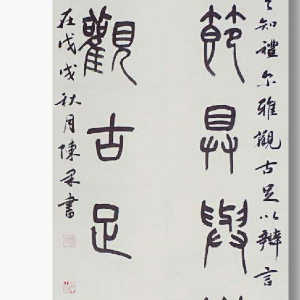 知禮尔雅觀古足以辨言
節具
觀古足
在戊戌秋月陳書